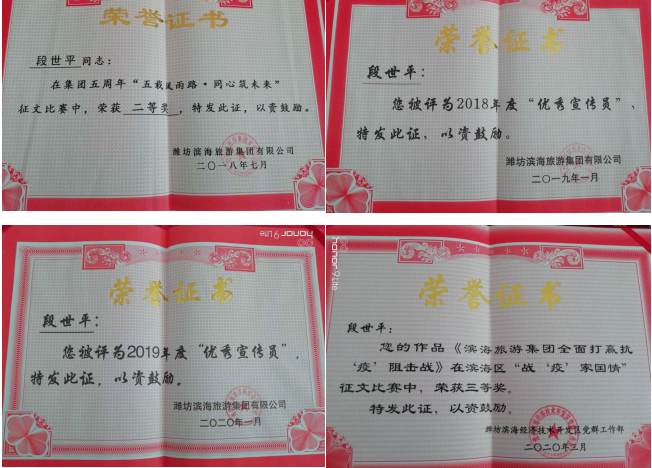 荣誉证书
段世平 同志：
在集团五周年“五载风雨路·同心筑未来”
征文比赛中，荣获 二等奖，特发此证，以资鼓励。
潍坊滨海旅游集团有限公司
二〇一八年七月
荣誉证书
段世平：
您被评为2018年度“优秀宣传员”，
特发此证，以资鼓励。
潍坊滨海旅游集团有限公司
二〇一九年一月
honor 9 Lite
荣誉证书
段世平：
您被评为2019年度“优秀宣传员”，
特发此证，以资鼓励。
潍坊滨海旅游集团有限公司
二〇二〇年一月
honor 9 Lite
荣誉证书
段世平：
您的作品《滨海旅游集团全面打赢执
‘疫’阻击战》在滨海区“战‘疫’家国情”
征文比赛中，荣获三等奖。
特发此证，以资鼓励。
潍坊滨海经济技术开发区党群工作部
二〇二〇年三月